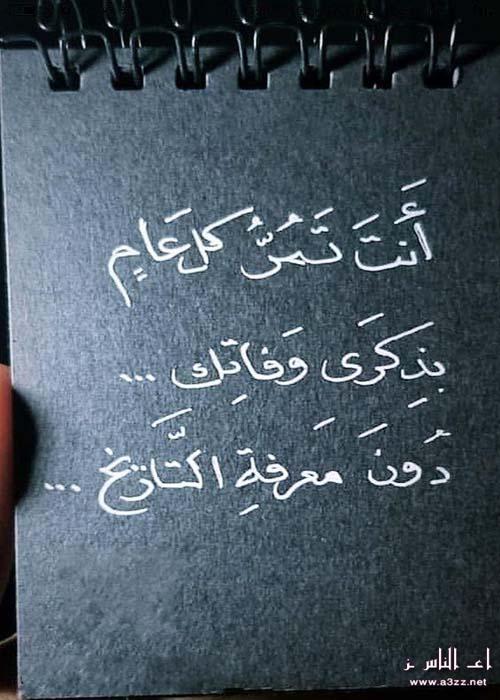 أَنتَ تَمُرُّ كل عَامٍ
بِذِكرَى وَفاتِك ...
دُونَ مَعرفةِ التَّاريَخ ...
اعـ الناس ـز
www.a3zz.net